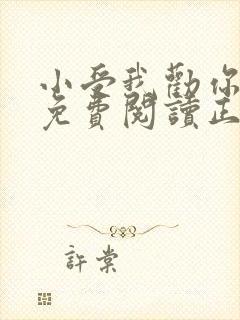 小受我勸你
免費閱讀正
許棠